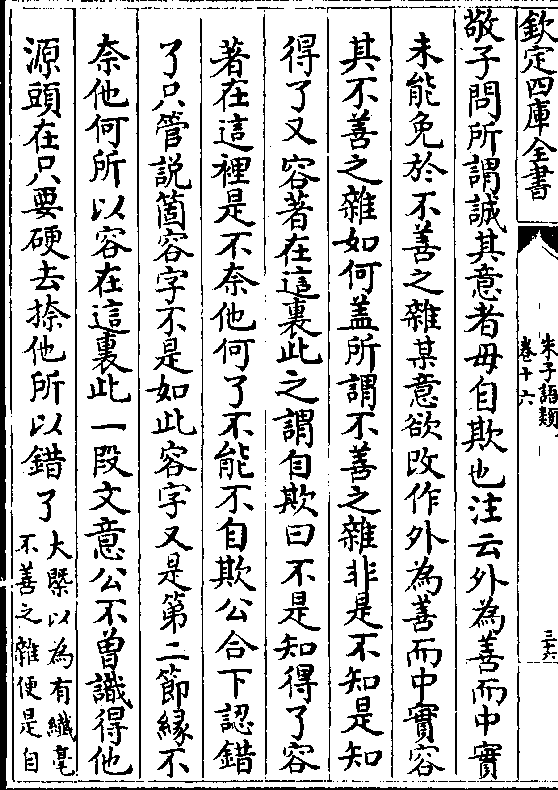 欽定四庫全書
朱子語類
卷十六
三十六
敬子問所謂誠其意者毋自欺也注云外為善而中實
未能免於不善之雜某意欲改作外為善而中實容
其不善之雜如何盖所謂不善之雜非是不知是知
得了又容著在這裏此之謂自欺曰不是知得了容
著在這裡是不奈他何了不能不自欺公合下認錯
了只管説箇容字不是如此容字又是第二節縁不
奈他何所以容在這裏此一段文意公不曾識得他
源頭在只要硬去捺他所以錯了
大槩以為有纖毫
不善之雜便是自